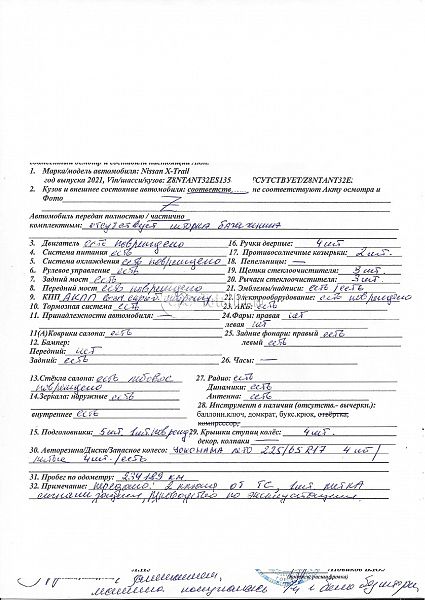 1. Марка/модель автомобиля: Nissan X-Trail
год выпуска 2021, Vin/шасси/кузов: Z8NTANT32ES135 ТСУТСТВУЕТ/Z8NTANT32E
2. Кузов и внешнее состояние автомобиля: соответств, не соответствуют Акту осмотра и
Фото Z
Автомобиль передан полностью / частично
комплектным: отсутствует шторка багажника
3. Двигатель есть повреждено
4. Система питания есть
5. Система охлаждения есть повреждено
6. Рулевое управление есть
7. Задний мост есть
8. Передний мост есть повреждено
9. КПП АКПП
10. Тормозная система есть
11. Принадлежности автомобиля: —
11(А)Коврики салона: есть
12. Бампер:
Передний: нет
Задний: есть
13.Стёкла салона: есть лобовое
повреждено
14.Зеркала: наружные есть
внутреннее есть
15. Подголовники: 5 шт.
16. Ручки дверные: 4 шт
17. Противосолнечные козырьки: 2 шт.
18. Пепельницы: —
19. Щетки стеклоочистителя: 3 шт.
20. Рычаги стеклоочистителя: 3 шт.
21. Эмблемы/надписи: есть/есть
22. Электрооборудование: есть повреждено
23. АКБ: есть
24. Фары: правая нет
левая нет
25. Задние фонари: правый есть
левый есть
26. Часы: —
27. Радио: есть
Динамики: есть
Антенна: есть
28. Инструмент в наличии (отсутств.- вычерки.):
баллонн.ключ, домкрат, букс.крюк, отвёртка,
компрессор;
29. Крышки ступиц колёс: 4 шт.
декор. колпаки —
30. Авторезина/Диски/Запасное колесо: YOKOHAMA лето 225/65 R17 4 шт/
литые 4 шт./есть
31. Пробег по одометру: 234189 км
32. Примечание: передано: 2 ключа от ТС, 1 шт. метка
сигнализации, руководство по эксплуатации.
(подпись, расшифровка)
машина покупалась б/у и была без шторки